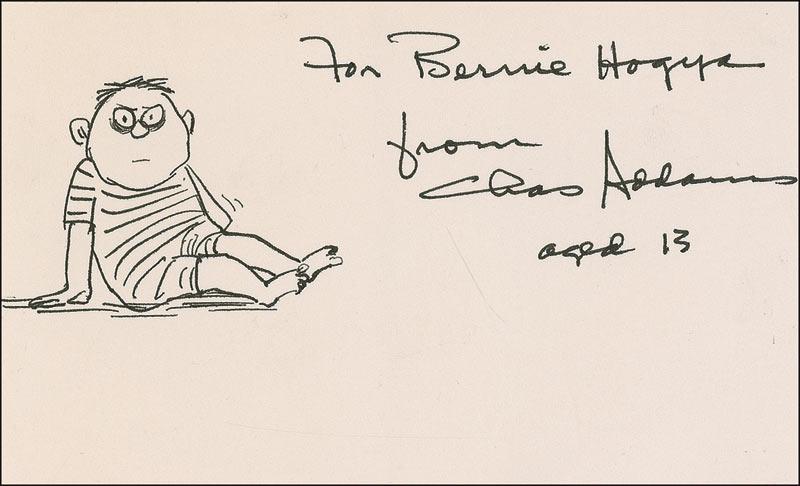 For Bernie Hogya
from
Chas Addams
aged 13